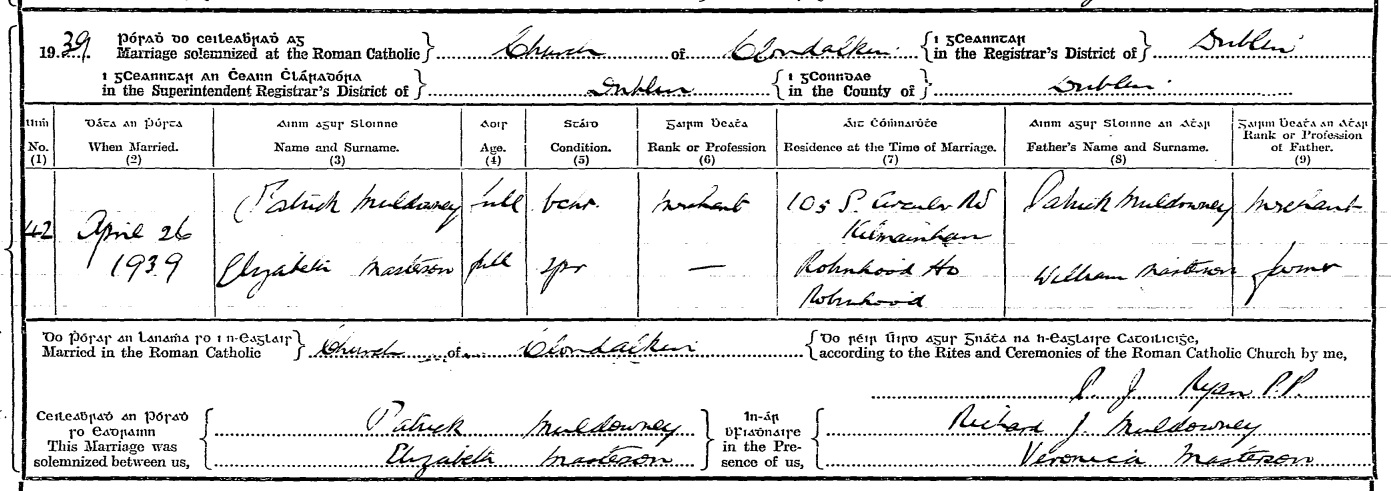 Pósadh do ceileabhradh ag
1939. Marriage solemnized at the Roman Catholic } Church of Clondalkin { i gCeanntar in the Registrar's District of } Dublin
i gCeanntar an Cheann Chláradóra
in the Superintendent Registrar's District of } Dublin { i gConndae in the County of } Dublin
Uimh Dáta an Pósta Ainm agus Sloinne Aois Stáid Gairm Beatha Áit Comhnuidhthe Ainm agus Sloinne an Athar Gairm Beatha an Athar
No. When Married. Name and Surname. Age. Condition. Rank or Profession Residence at the Time of Marriage. Father's Name and Surname. Rank or Profession of Father.
(1) (2) (3) (4) (5) (6) (7) (8) (9)
Patrick Muldowney full bchr. Merchant 105 S. Circular Rd Patrick Muldowney Merchant
42 April 26 Kilmainham
1939 Elizabeth Masterson full spr — Robinhood Ho William Masterson farmer
Robinhood
Do Pósadh an Lanamha so i n-Eaglais
Married in the Roman Catholic } Church of Clondalkin { Do réir Úird agus Gnáta na h-Eaglaise Catoilicighe,
according to the Rites and Ceremonies of the Roman Catholic Church by me,
P. J. Ryan P.P.
Ceileabhradh an Pósadh so Eadrainn
This Marriage was solemnized between us, { Patrick Muldowney
Elizabeth Masterson }
In-ár bhFiadhnaire
in the Presence of us, { Richard J. Muldowney
Veronica Masterson